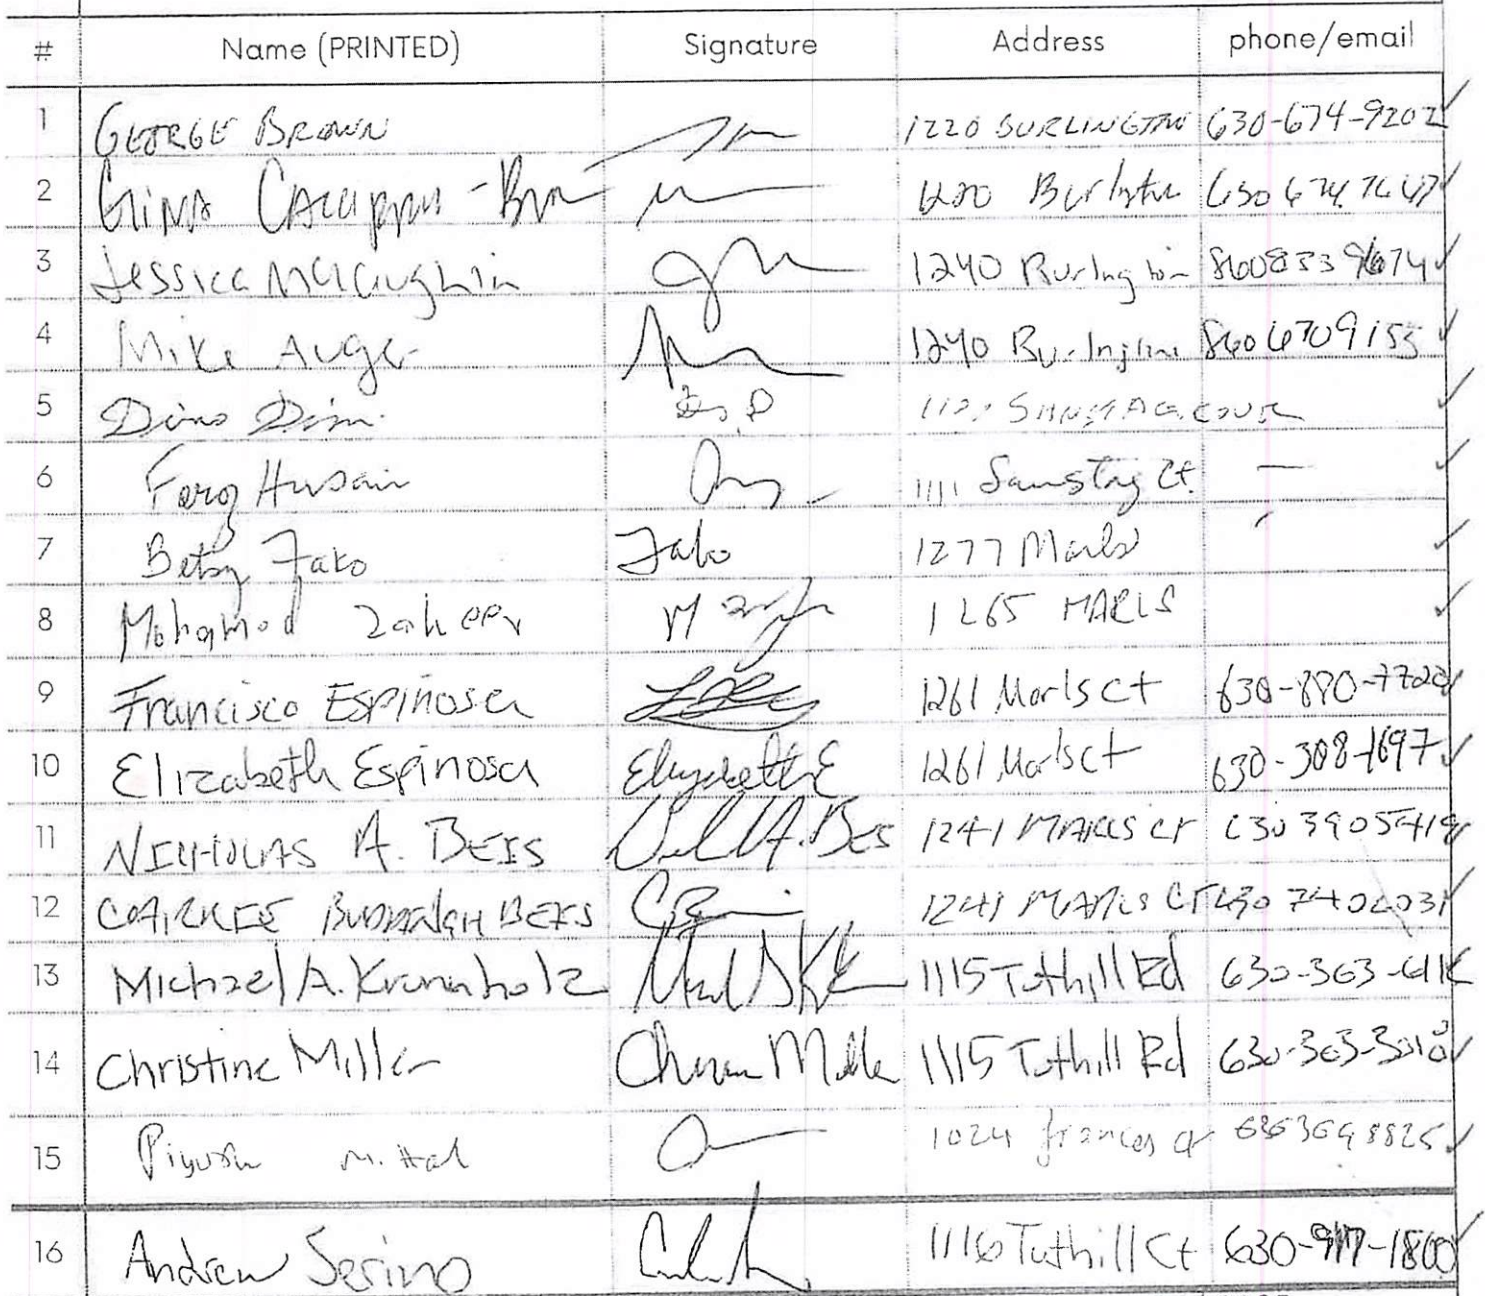 # Name (PRINTED) Signature Address phone/email
1 GEORGE BROWN 1220 BURLINGTON 630-674-9202
2 GINA 1220 Burlington 630 674 7647
3 Jessica McLaughlin 1240 Burlington 8608339674
4 Mike Auger 1240 Burlington 8606709155
5 Dino
6 Farq Husain 1111 Ct. —
7 Betsy Fako Fako 1277 Marls
8 Mohamod Zaheer 1265 MARLS
9 Francisco Espinosa 1261 Marls Ct
10 Elizabeth Espinosa Elizabeth E 1261 Marls Ct 630-308-1697
11 NICHOLAS A. BEIS 1241 MARLS CT 630 390 5419
12 BEIS 1241 MARLS CT 630 740 2031
13 Michael A. Krumholz 1115 Tuthill Rd 630-363-
14 Christine Miller 1115 Tuthill Rd 630-363-3010
15 Piyush Mittal 1024 frances ct
16 Andrew Serino 1116 Tuthill Ct 630-917-1800